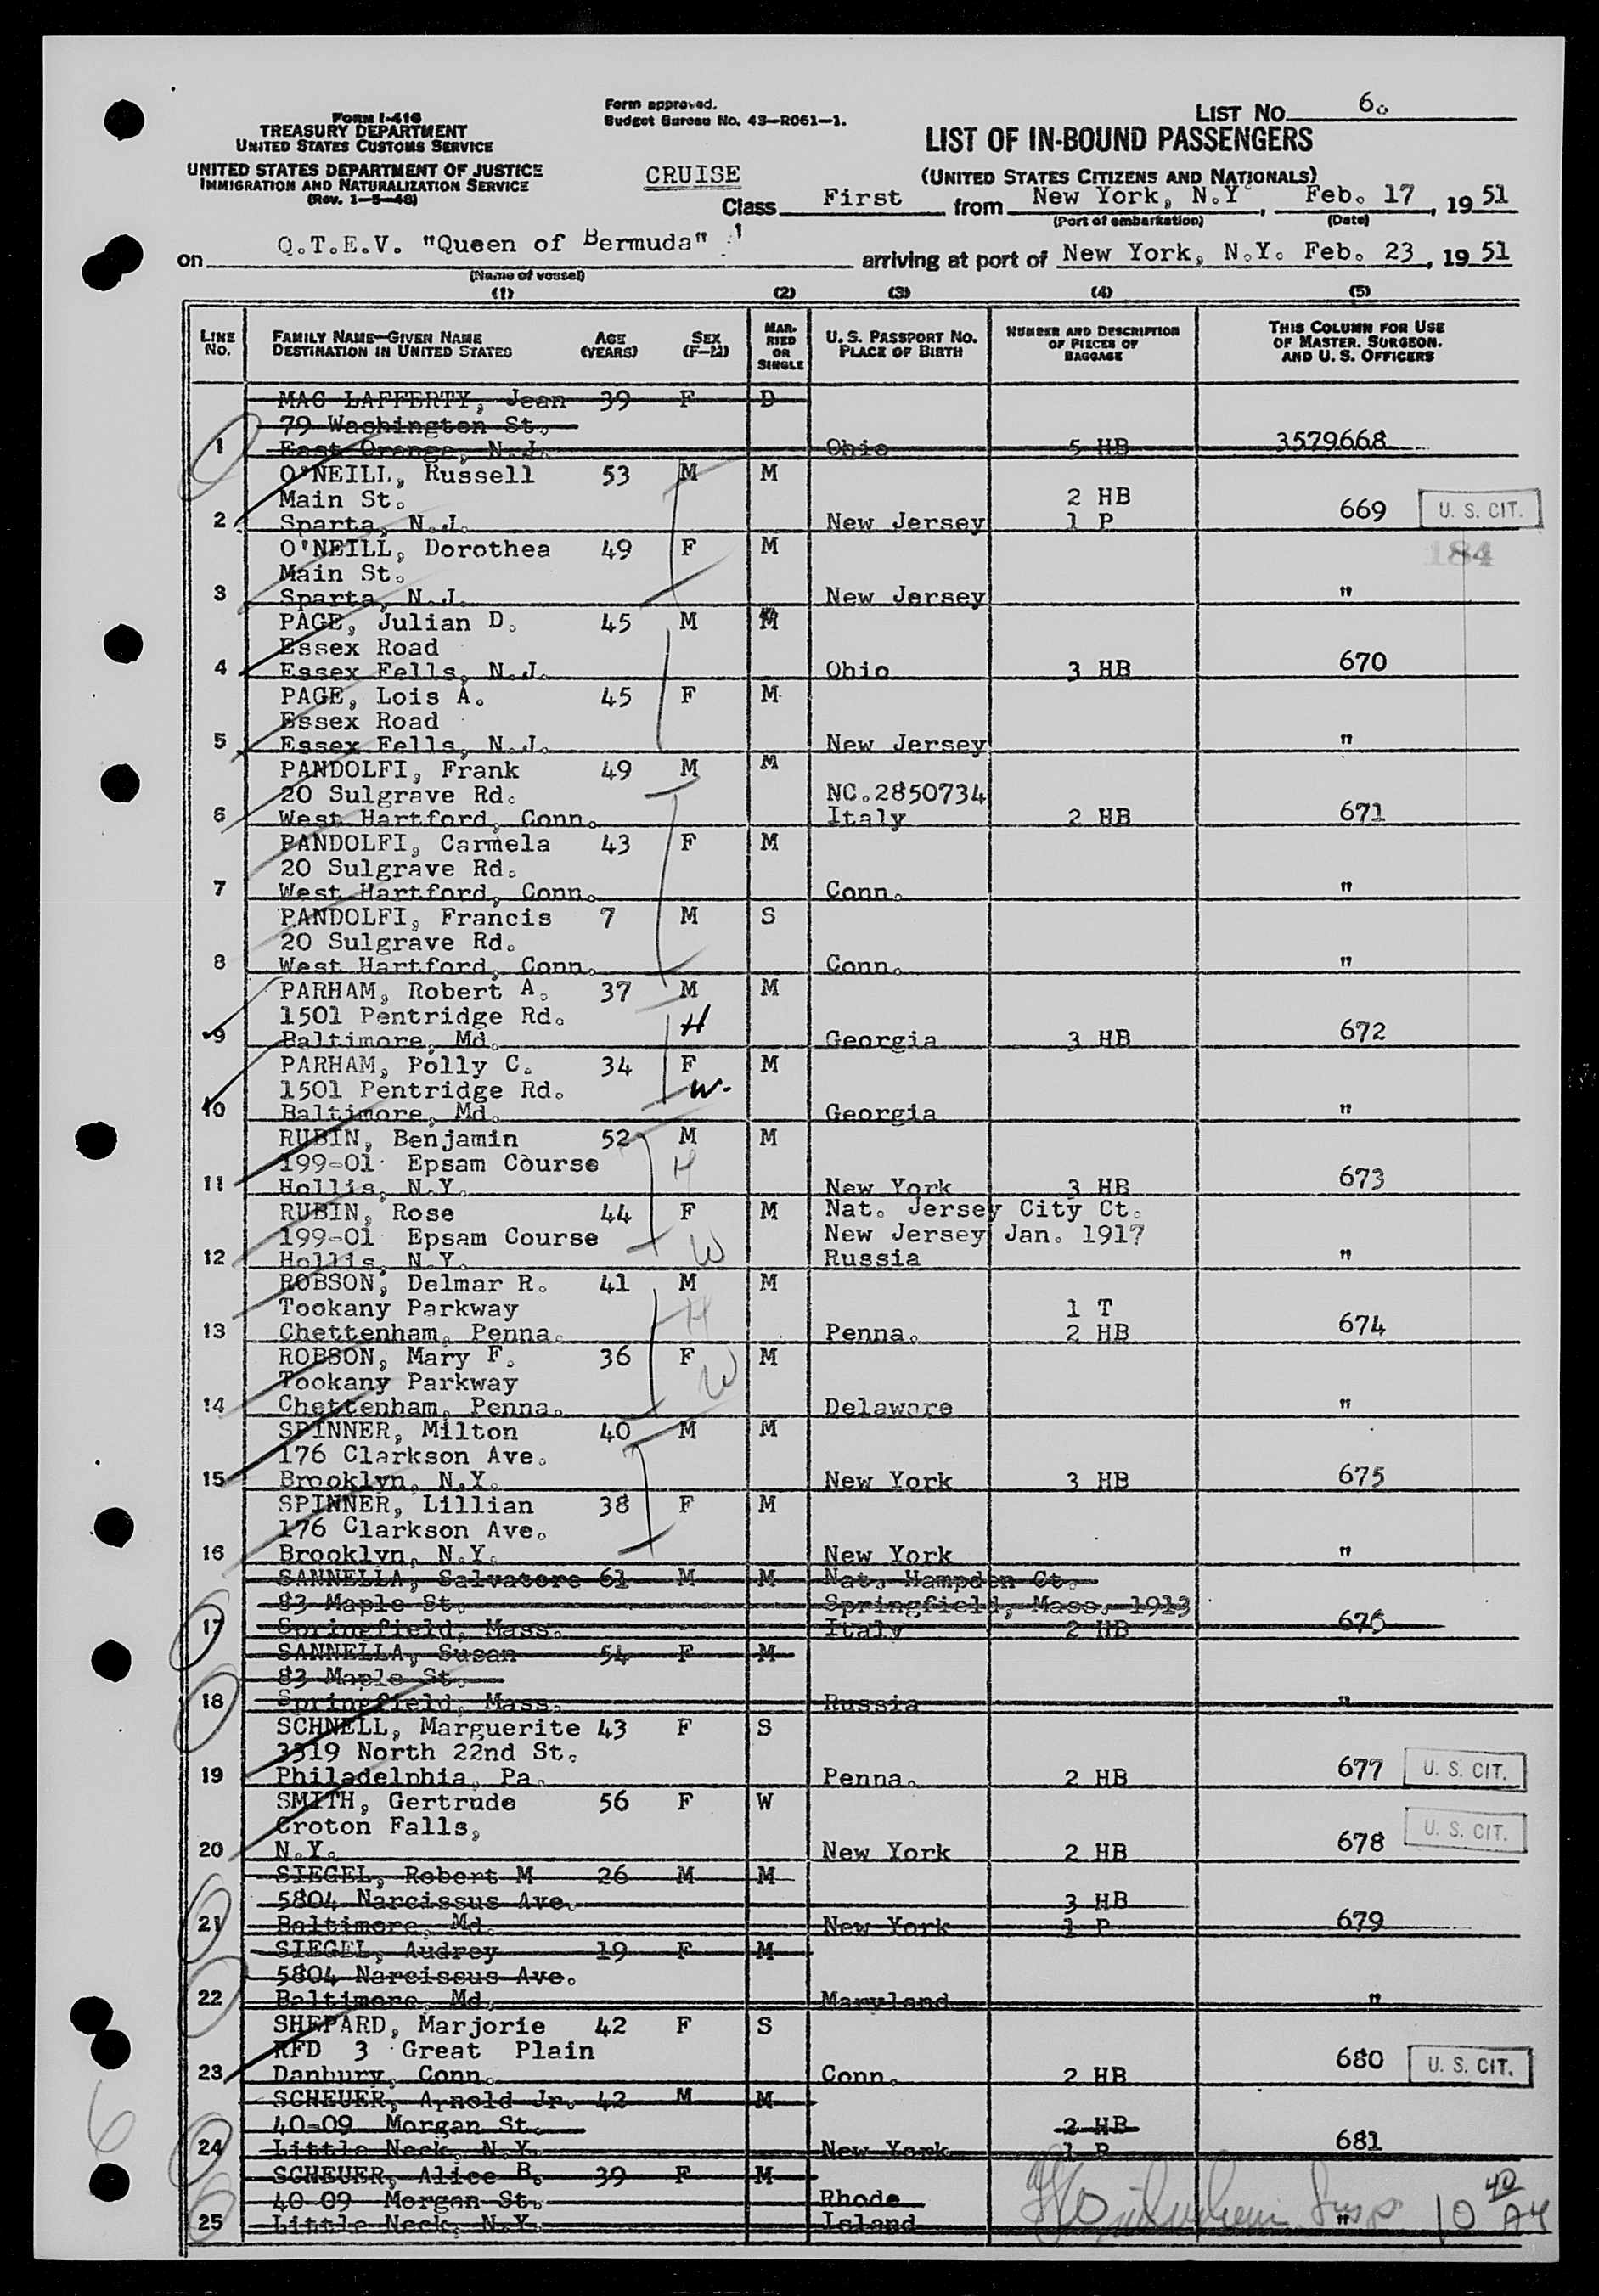 FORM I-416
TREASURY DEPARTMENT
UNITED STATES CUSTOMS SERVICE
UNITED STATES DEPARTMENT OF JUSTICE
IMMIGRATION AND NATURALIZATION SERVICE
(Rev. 1-5-48)
Form approved.
Budget Bureau No. 43-R061-1.
LIST NO. 6.
LIST OF IN-BOUND PASSENGERS
(UNITED STATES CITIZENS AND NATIONALS)
CRUISE
Class First from New York, N.Y., Feb. 17, 1951
(Port of embarkation) (Date)
on Q.T.E.V. "Queen of Bermuda" arriving at port of New York, N.Y. Feb. 23, 1951
(Name of vessel)
(1) (2) (3) (4) (5)
LINE NO. FAMILY NAME-GIVEN NAME DESTINATION IN UNITED STATES AGE (YEARS) SEX (F-M) MARRIED OR SINGLE U. S. PASSPORT NO. PLACE OF BIRTH NUMBER AND DESCRIPTION OF PIECES OF BAGGAGE THIS COLUMN FOR USE OF MASTER. SURGEON. AND U. S. OFFICERS
MAC LAFFERTY, Jean 39 F D
79 Washington St.
1 East Orange, N.J. Ohio 5 HB 3579668
O'NEILL, Russell 53 M M
Main St. 2 HB 669 U. S. CIT.
2 Sparta, N.J. New Jersey 1 P
O'NEILL, Dorothea 49 F M 184
Main St.
3 Sparta, N.J. New Jersey "
PAGE, Julian D. 45 M M
Essex Road
4 Essex Fells, N.J. Ohio 3 HB 670
PAGE, Lois A. 45 F M
Essex Road
5 Essex Fells, N.J. New Jersey "
PANDOLFI, Frank 49 M M
20 Sulgrave Rd. NC.2850734
6 West Hartford, Conn. Italy 2 HB 671
PANDOLFI, Carmela 43 F M
20 Sulgrave Rd.
7 West Hartford, Conn. Conn. "
PANDOLFI, Francis 7 M S
20 Sulgrave Rd.
8 West Hartford, Conn. Conn. "
PARHAM, Robert A. 37 M M
1501 Pentridge Rd. H
9 Baltimore, Md. Georgia 3 HB 672
PARHAM, Polly C. 34 F M
1501 Pentridge Rd. W.
10 Baltimore, Md. Georgia "
RUBIN, Benjamin 52 M M
199-01 Epsam Course H
11 Hollis, N.Y. New York 3 HB 673
RUBIN, Rose 44 F M Nat. Jersey City Ct.
199-01 Epsam Course W New Jersey Jan. 1917
12 Hollis, N.Y. Russia "
ROBSON, Delmar R. 41 M M
Tookany Parkway H 1 T
13 Chettenham, Penna. Penna. 2 HB 674
ROBSON, Mary F. 36 F M
Tookany Parkway W
14 Chettenham, Penna. Delaware "
SPINNER, Milton 40 M M
176 Clarkson Ave.
15 Brooklyn, N.Y. New York 3 HB 675
SPINNER, Lillian 38 F M
176 Clarkson Ave.
16 Brooklyn, N.Y. New York "
SANNELLA, Salvatore 61 M M Nat. Hampden Ct.
83 Maple St. Springfield, Mass. 1913
17 Springfield, Mass. Italy 2 HB 676
SANNELLA, Susan 54 F M
83 Maple St.
18 Springfield, Mass. Russia "
SCHNELL, Marguerite 43 F S
3319 North 22nd St.
19 Philadelphia, Pa. Penna. 2 HB 677 U. S. CIT.
SMITH, Gertrude 56 F W
Croton Falls, U. S. CIT.
20 N.Y. New York 2 HB 678
SIEGEL, Robert M 26 M M
5804 Narcissus Ave. 3 HB
21 Baltimore, Md. New York 1 P 679
SIEGEL, Audrey 19 F M
5804 Narcissus Ave.
22 Baltimore, Md. Maryland "
SHEPARD, Marjorie 42 F S
RFD 3 Great Plain 680 U. S. CIT.
23 Danbury, Conn. Conn. 2 HB
SCHEUER, Arnold Jr. 42 M M
40-09 Morgan St. 2 HB
24 Little Neck, N.Y. New York 1 P 681
SCHEUER, Alice B. 39 F M
40-09 Morgan St. Rhode
25 Little Neck, N.Y. Island "
Insp 10 40 AM
6